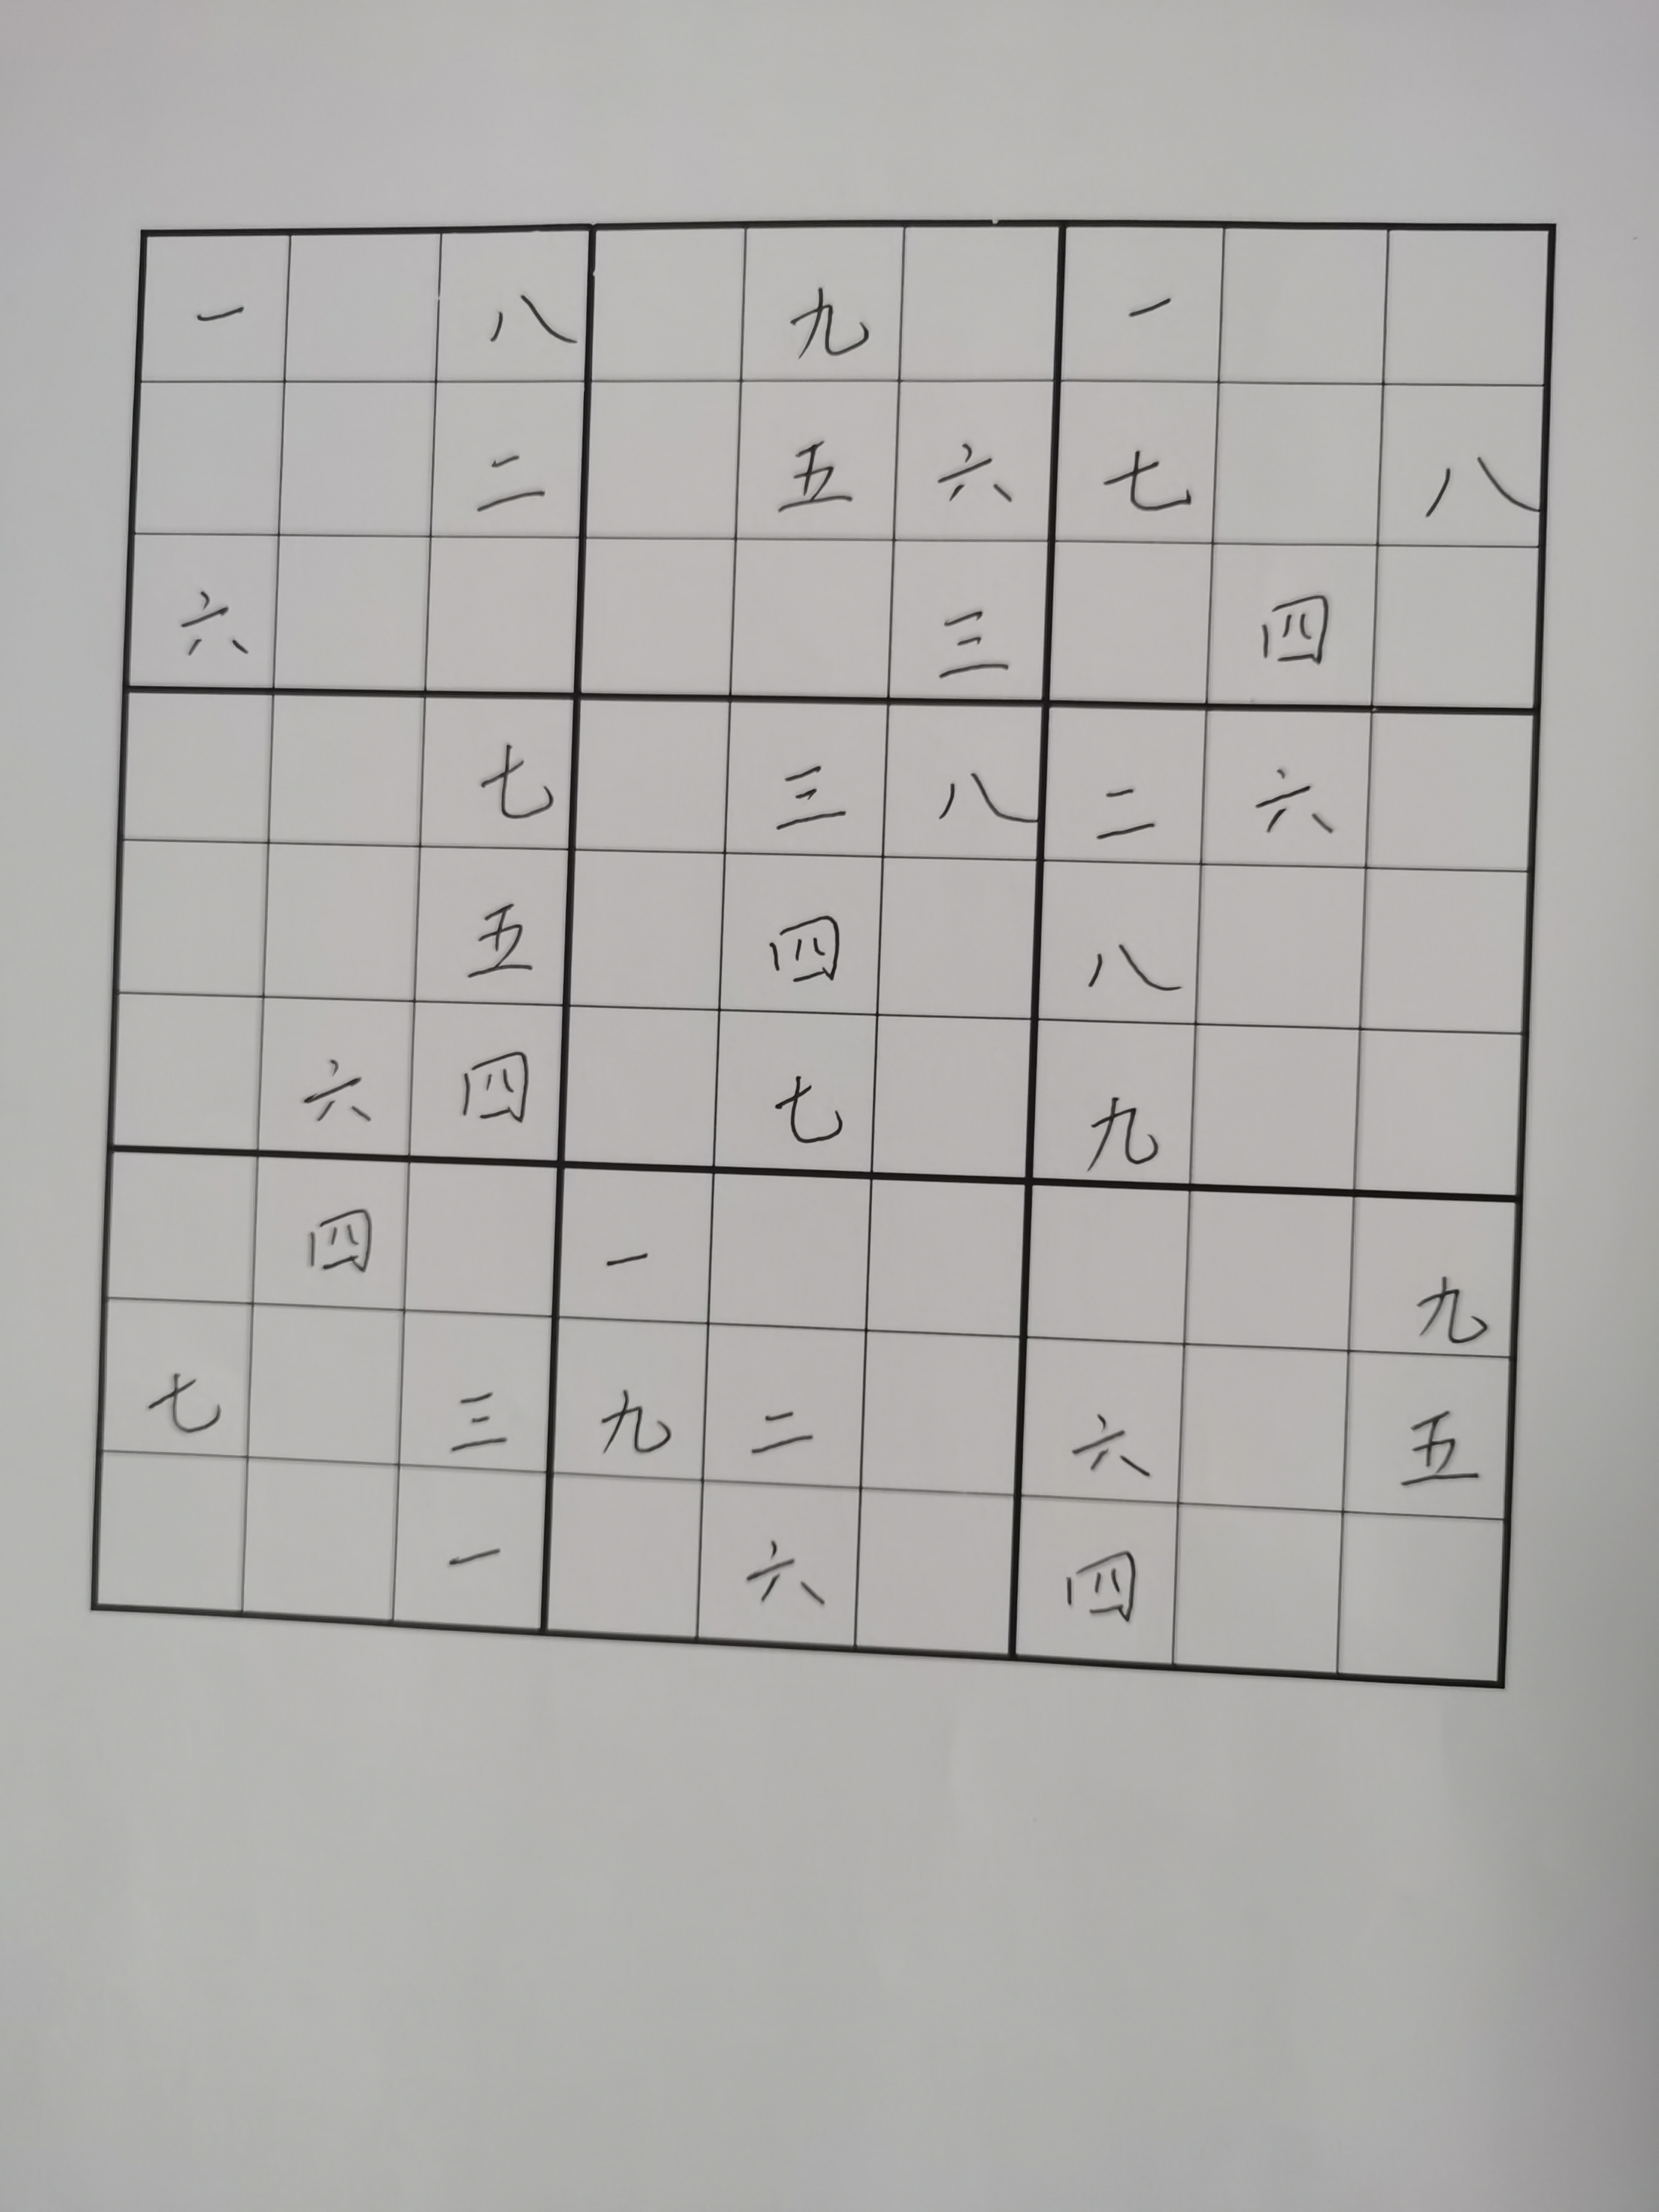 一 八 九 一
二 五 六 七 八
六 三 四
七 三 八 二 六
五 四 八
六 四 七 九
四 一 九
七 三 九 二 六 五
一 六 四